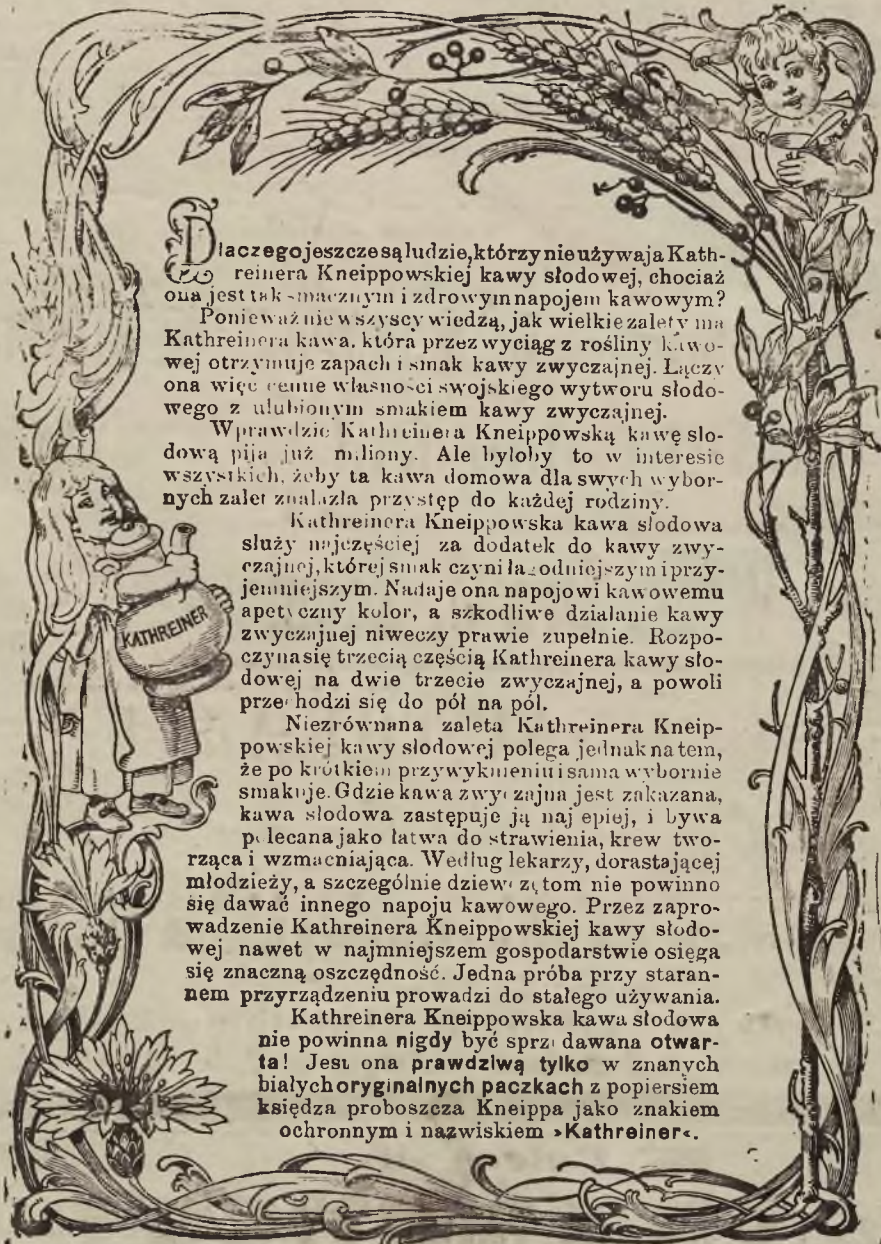 Dlaczego jeszcze są ludzie, którzy nie używaja Kath-
reinera Kneippowskiej kawy słodowej, chociaż
ona jest tak smacznym i zdrowym napojem kawowym?
Ponieważ nie wszyscy wiedzą, jak wielkie zalety ma
Kathreinera kawa, która przez wyciąg z rośliny kawo-
wej otrzymuje zapach i smak kawy zwyczajnej. Łączy
ona więc cenne własności swojskiego wytworu słodo-
wego z ulubionym smakiem kawy zwyczajnej.
Wprawdzie Kathreinera Kneippowską kawę sło-
dową pija już miliony. Ale byłoby to w interesie
wszystkich, żeby ta kawa domowa dla swych wybor-
nych zalet znalazła przystęp do każdej rodziny.
Kathreinera Kneippowska kawa słodowa
służy najczęściej za dodatek do kawy zwy-
czajnej, której smak czyni łagodniejszym i przy-
jemniejszym. Nadaje ona napojowi kawowemu
apetyczny kolor, a szkodliwe działanie kawy
zwyczajnej niweczy prawie zupełnie. Rozpo-
czyna się trzecią częścią Kathreinera kawy sło-
dowej na dwie trzecie zwyczajnej, a powoli
przechodzi się do pół na pół.
Niezrównana zaleta Kathreinera Kneip-
powskiej kawy słodowej polega jednak na tem,
że po krótkiem przywyknieniu i sama wybornie
smakuje. Gdzie kawa zwyczajna jest zakazana,
kawa słodowa zastępuje ją najlepiej, i bywa
polecana jako łatwa do strawienia, krew two-
rząca i wzmacniająca. Według lekarzy, dorastającej
młodzieży, a szczególnie dziewczętom nie powinno
się dawać innego napoju kawowego. Przez zapro-
wadzenie Kathreinera Kneippowskiej kawy słodo-
wej nawet w najmniejszem gospodarstwie osięga
się znaczną oszczędność. Jedna próba przy staran-
nem przyrządzeniu prowadzi do stałego używania.
Kathreinera Kneippowska kawa słodowa
nie powinna nigdy być sprzedawana otwar-
ta! Jest ona prawdziwą tylko w znanych
białych oryginalnych paczkach z popiersiem
księdza proboszcza Kneippa jako znakiem
ochronnym i nazwiskiem »Kathreiner«.
KATHREINER